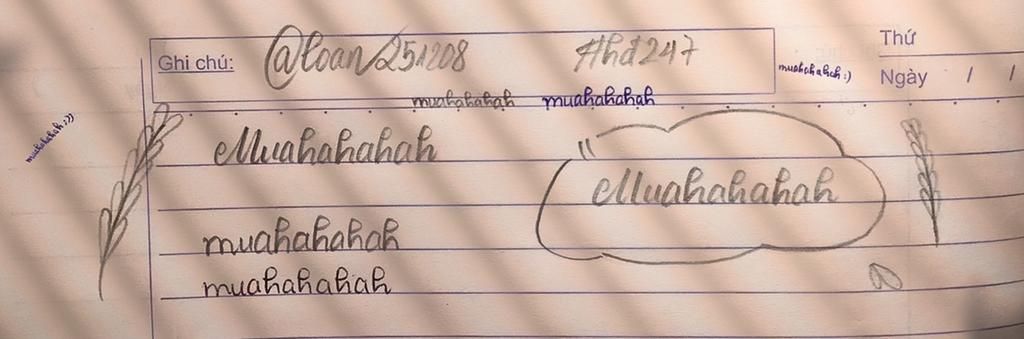 Ghi chú: @loan251208 #hđ247 Thứ
muahahahah:) Ngày / /
muahahahah muahahahah
muahahahah:))
Muahahahah
" Muahahahah
muahahahah
muahahahah